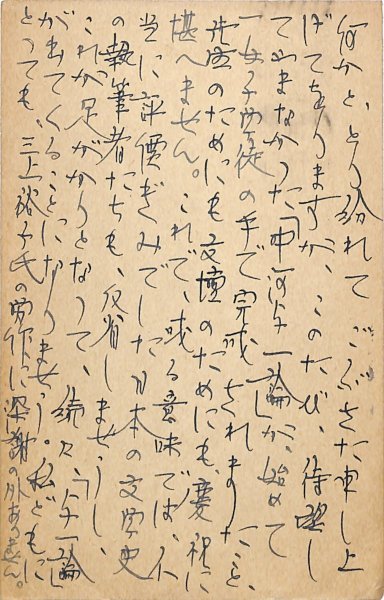 何かと、とり紛れて ごぶさた申し上
げてをりますが、このたび、待望し
てやまなかつた「中河与一論」が、始めて
一女子学徒の手で完成されましたこと、
のためにも文壇のためにも、慶祝に
堪へません。これで、或る意味では、不
当に評價ぎみでした日本の文学史
の執筆者たちも、反省しませうし、
これが足がかりとなつて、続々与一論
が出てくることになりませう。私どもに
とつても、三上裕子氏の労作に深謝の外ありません。